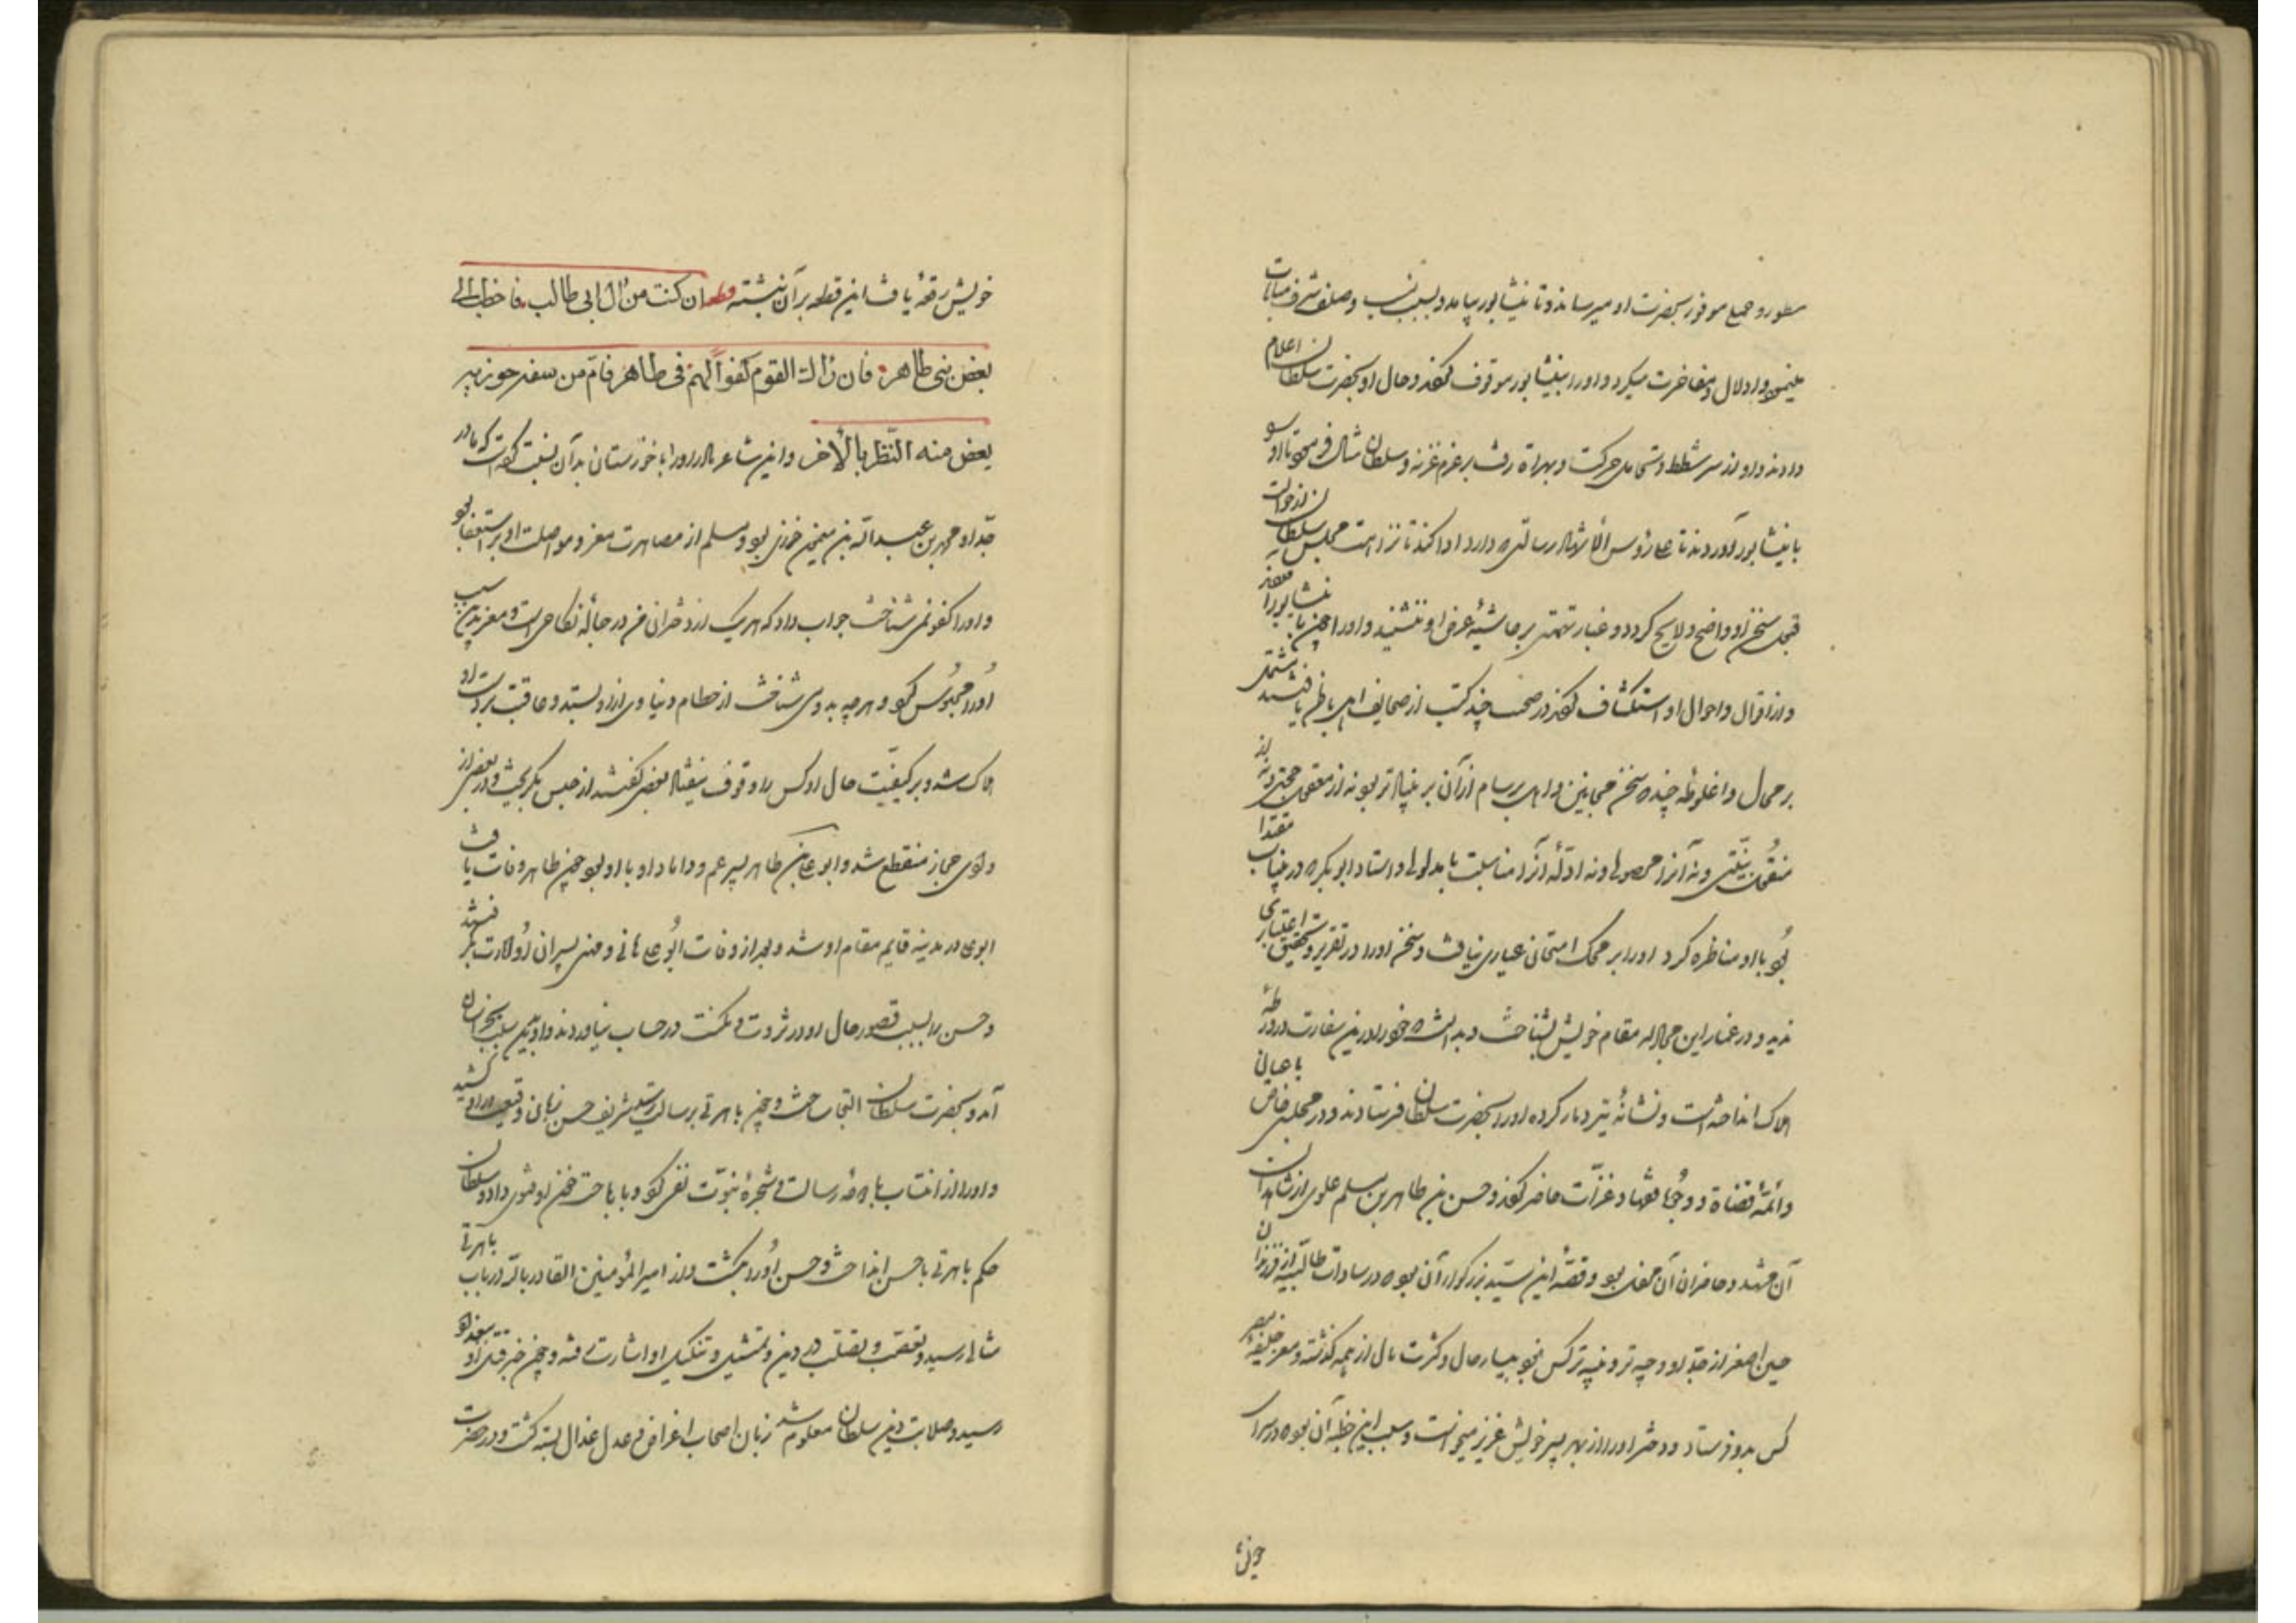 مسطور و جمیع موفور بحضرت او میرساند و تا نیشابور بیامد و بسبب نسب و صلف شرف مباهات
مینمود و ادلال و مفاخرت میکرد و او را بنیشابور موقوف کردند و حال او بحضرت سلطان اعلام
دادند و او از سر شطط و تحامل حرکت و بهراة رفت بر عزم غزنه و سلطان مثال فرمود تا او را
با نیشابور آوردند تا علی رؤس الاشهاد رسالتی که دارد ادا کند تا نزاهت مجلس سلطان از
سخن او واضح و لایح گردد و غبار تهمتی بر حاشیهٔ عرض او ننشیند و او را چون با نیشابور
و از اقوال و احوال او استکشاف کردند در صحبت چند کتب از صحایف اهل باطن یافتند مشتمل
بر محال و اغلوطه چند که سخن مجانین و اهل برسام از آن بر بنیادتر بود نه از معقول حجتی
منقول بینتی و نه آنرا محصولی و نه ادلّه آنرا مناسبت با مدلولی و استاد ابو بکر که در مقتدا
بود با او مناظره کرد او را بر محک امتحان عیاری نیافت و سخن او را در تقریر و تحقیق اعتباری
ندید و در غمار این مجادله مقام خویش بشناخت و بدانست که خود را در این سفارت در ورطهٔ
هلاک انداخته است و نشانهٔ تیر دمار کرده او را بحضرت سلطان فرستادند و در مجلس خاص باعیان
و ائمّه و قضاة و وجوه فقها و غزات حاضر کردند و حسن بن طاهر بن مسلم علوی از شاهدان
آن مشهد و حاضران آن محفل بود و قصّه این سیّد بزرگوار آن بود که در سادات طالبیه از فرزندان
حسین اصغر از جدّ او وجیه تر و نبیه تر کس نبود بیسار حال و کثرت مال از همه گذشته و معز خلیفه مصر
کس بدو فرستاد و دختر او را از بهر پسر خویش عزیز میخواست و سبب این خطبه آن بود که در سرای
خویش رقعهٔ یافت این قطعه بر آن نبشته قطعه ان کنت من آل ابی طالب فاخطب الی
بعض بنی طاهر فان رآک القوم کفواً لهم فی طاهر فامّ من سفر حوزیر
یعض منه النّظر بالآخر و این شاعر مادر او را با خوزستان بدآن نسبت کرده است که مادر
جدّ او محمّد بن عبداللّه بن خوزی بود و مسلم از مصاهرت معز و مواصلت او بر استعفا بود
و او را کفو نمی شناخت جواب داد که هر یک از دختران من در حبالهٔ نکاحی است و معز بدین سبب
او را محبوس کرد و هر چه بدو می شناخت از حطام دنیاوی از او بستد و عاقبت بر دست او
هلاک شد و بر کیفیّت حال او کس را وقوف نیفتاد بعضی گفتند از حبس بگریخت و در بعضی از
وادی حجاز منقطع شد و ابو علی بن طاهر پسر عم و داماد او با او بود چون طاهر وفات یافت
ابو علی در مدینه قایم مقام او شد و بعد از وفات ابو علی هانی و مهنی پسران او امارت بگرفتند
و حسن را بسبب قصور حال او در ثروت و مکنت در حساب نیاوردند و او بدین سبب بخراسان
آمد و بحضرت سلطان التجا ساخت و چون باهرتی برسالت رسید شریف حسن زبان وقیعت در او کشید
و او را از انتساب با دوحهٔ رسالت و شجرهٔ نبوّت نفی کرد و باباحت خون او فتوی داد و سلطان
حکم باهرتی با حسن انداخت و حسن او را بکشت و از امیر المؤمنین القادر باللّه در باب باهرتی
مثالی رسیده و بتعصّب و تصلّب در دین و تمثیل و تنکیل او اشارت رفته و چون خبر قتل او
رسید و صلابت دین سلطان معلوم شد زبان اصحاب اغراض و عدل عذال بسته گشت و در حضرت